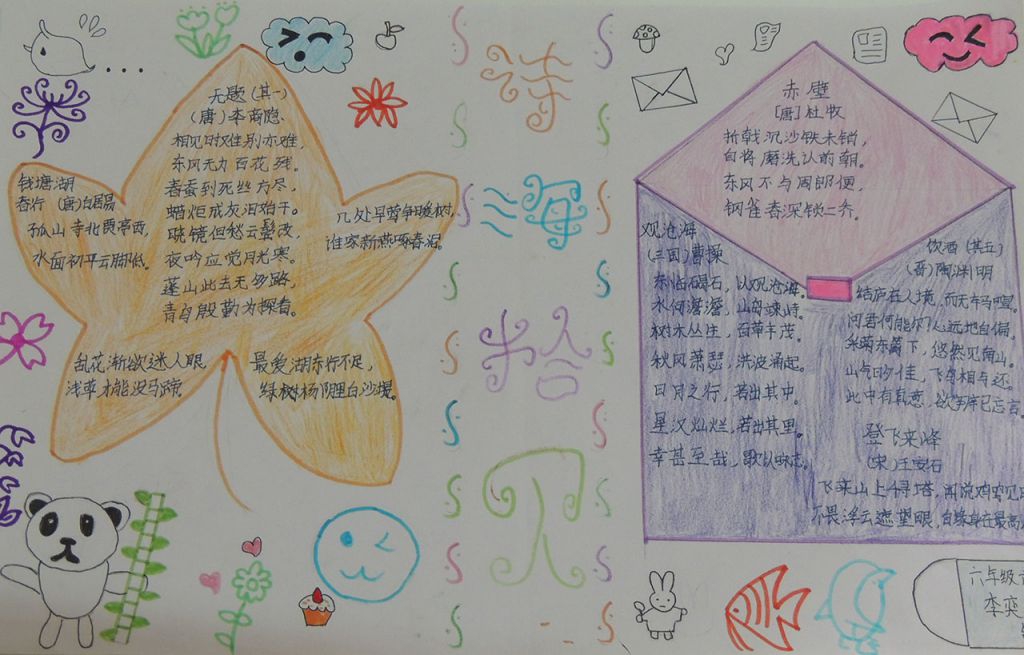 无题(其一)
(唐)李商隐
相见时难别亦难,
东风无力百花残。
春蚕到死丝方尽,
蜡炬成灰泪始干。
晓镜但愁云鬓改,
夜吟应觉月光寒。
蓬山此去无多路,
青鸟殷勤为探看。
钱塘湖
春行 (唐)白居易
孤山寺北贾亭西,
水面初平云脚低。
几处早莺争暖树,
谁家新燕啄春泥。
乱花渐欲迷人眼,
浅草才能没马蹄。
最爱湖东行不足,
绿树杨阴里白沙堤。
诗
海
拾
贝
赤壁
[唐]杜牧
折戟沉沙铁未销,
自将磨洗认前朝。
东风不与周郎便,
铜雀春深锁二乔。
观沧海
(三国)曹操
东临碣石,以观沧海。
水何澹澹,山岛竦峙。
树木丛生,百草丰茂。
秋风萧瑟,洪波涌起。
日月之行,若出其中。
星汉灿烂,若出其里。
幸甚至哉,歌以咏志。
饮酒(其五)
(晋)陶渊明
结庐在人境,而无车马喧。
问君何能尔?心远地自偏。
采菊东篱下,悠然见南山。
山气日夕佳,飞鸟相与还。
此中有真意,欲辨已忘言
登飞来峰
(宋)王安石
飞来山上千寻塔,闻说鸡鸣见
不畏浮云遮望眼,自缘身在最高
六年级
李奕